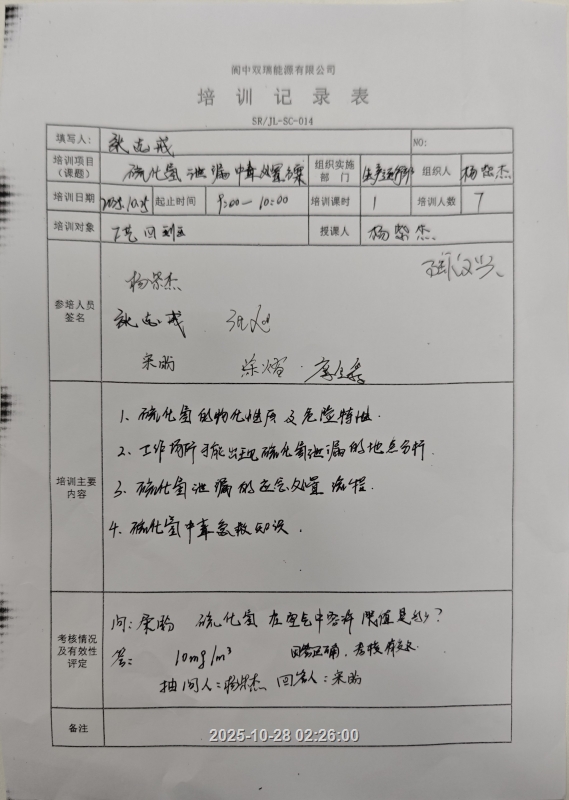 阆中双瑞能源有限公司
培 训 记 录 表
SR/JL-SC-014
填写人： NO:
培训项目（课题） 硫化氢泄漏中毒处置 组织实施部门 生产运行部 组织人 杨荣杰
培训日期 2025.10.25 起止时间 9:00—10:00 培训课时 1 培训人数 7
培训对象 授课人 杨荣杰
参培人员签名
杨荣杰
宋昀
涂熔
培训主要内容
1、硫化氢的物化性质及危险特性.
2、工作场所可能出现硫化氢泄漏的地点分析.
3、硫化氢泄漏的应急处置流程.
4、硫化氢中毒急救知识.
考核情况及有效性评定
问： 硫化氢在空气中容许限值是多少？
答： 10mg/m³ 回答正确，考核有效.
抽问人：杨荣杰 回答人：宋昀
备注
2025-10-28 02:26:00